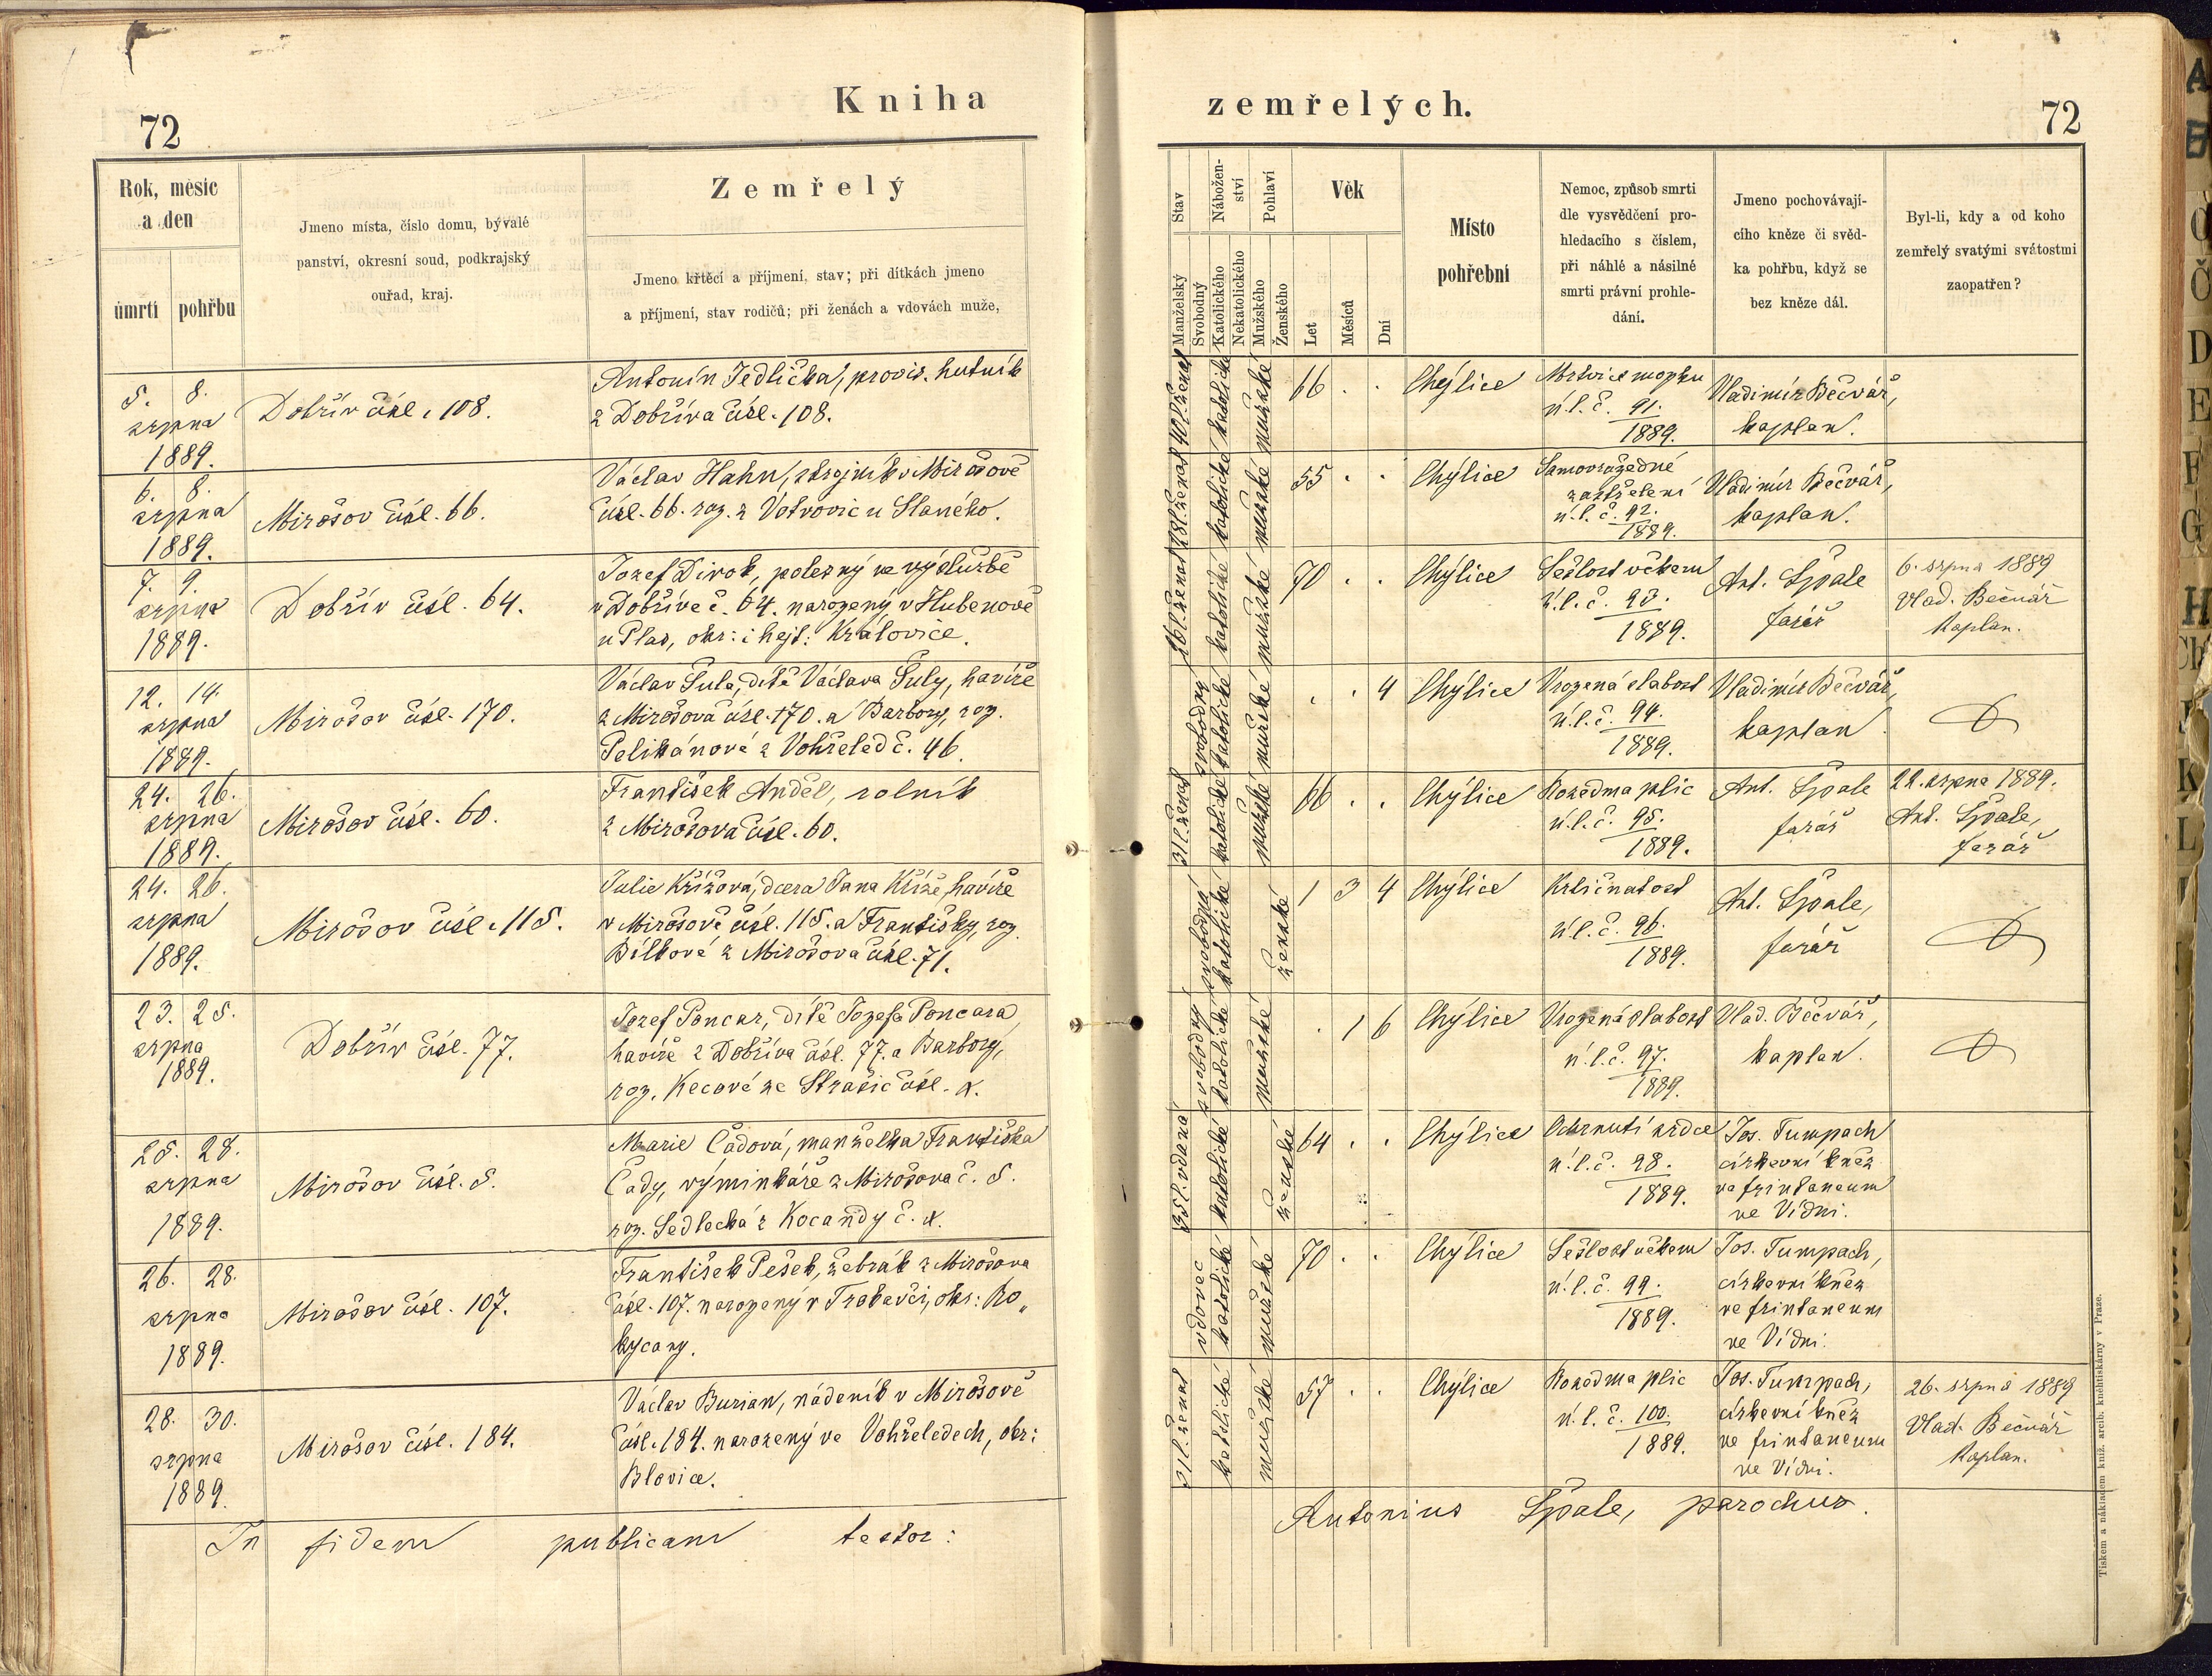 Kniha
72
Rok, měsíc
a den
úmrtí
pohřbu
Jmeno místa, číslo domu, bývalé
panství, okresní soud, podkrajský
ouřad, kraj.
Zemřelý
Jmeno křtěcí a příjmení, stav; při dítkách jmeno
a příjmení, stav rodičů; při ženách a vdovách muže,
5. 8.
srpna
1889.
Dobřív čísl. 108.
Antonín Jedlička, provis. hutník
z Dobříva čísl. 108.
6. 8.
srpna
1889.
Mirošov čísl. 66.
Václav Hahn, strojník v Mirošově
čísl. 66. roz. z Votvovic u Slaného.
7. 9.
srpna
1889.
Dobřív čísl. 64.
Jozef Divok, polesný ve výslužbě
v Dobřívě č. 64. narozený v Hubenově
u Plas, okr: i hejt: Kralovice.
12. 14.
srpna
1889.
Mirošov čísl. 170.
Václav Šula, dítě Václava Šuly, havíře
z Mirošova čísl. 170. a Barbory, roz.
Pelikánové z Vohřeled č. 46.
24. 26.
srpna
1889.
Mirošov čísl. 60.
František Anděl, rolník
z Mirošova čísl. 60.
24. 26.
srpna
1889.
Mirošov čísl. 115.
Julie Křížová, dcera Jana Kříže, havíře
v Mirošově čísl. 115. a Františky, roz.
Bílkové z Mirošova čísl. 71.
23. 25.
srpna
1889.
Dobřív čísl. 77.
Jozef Poncar, dítě Jozefa Poncara,
havíře z Dobříva čísl. 77. a Barbory,
roz. Kecové ze Strašic čísl. x.
25. 28.
srpna
1889.
Mirošov čísl. 5.
Marie Čadová, manželka Františka
Čady, výminkáře z Mirošova č. 5.
roz. Sedlecká z Kocandy č. x.
26. 28.
srpna
1889.
Mirošov čísl. 107.
František Pešek, žebrák z Mirošova
čísl. 107. narozený v Trokavči, okr: Ro„
kycany.
28. 30.
srpna
1889.
Mirošov čísl. 184.
Václav Burian, nádeník v Mirošově
čísl. 184. narozený ve Vohřeledech, okr:
Blovice.
In fidem publicam testor:
zemřelých.
72
Stav
Manželský
Svobodný
Nábožen-
ství
Katolického
Nekatolického
Pohlaví
Mužského
Ženského
Věk
Let
Měsíců
Dní
Místo
pohřební
Nemoc, způsob smrti
dle vysvědčení pro-
hledacího s číslem,
při náhlé a násilné
smrti právní prohle-
dání.
Jmeno pochovávají-
cího kněze či svěd-
ka pohřbu, když se
bez kněze dál.
Byl-li, kdy a od koho
zemřelý svatými svátostmi
zaopatřen?
40 l. ženat
katolické
mužské
66 . .
Chýlice
Mrtvice mozku
ú. l. č. 91.
1889.
Vladimír Bečvář,
kaplan.
28 l. ženat
katolické
mužské
55 . .
Chýlice
Samovražedné
zastřelení
ú. l. č. 92.
1889.
Vladimír Bečvář,
kaplan.
26 l. ženat
katolické
mužské
70 . .
Chýlice
Sešlost věkem
ú. l. č. 93.
1889.
Ant. Špale
farář
6. srpna 1889
Vlad. Bečvář
kaplan.
svobodný
katolické
mužské
. . 4
Chýlice
Vrozená slabost
ú. l. č. 94.
1889.
Vladimír Bečvář,
kaplan
31 l. ženat
katolické
mužské
66 . .
Chýlice
Rozedma plic
ú. l. č. 95.
1889.
Ant. Špale
farář
22. srpna 1889.
Ant. Špale,
farář
svobodná
katolické
ženské
1 3 4
Chýlice
Krtičnatost
ú. l. č. 96.
1889.
Ant. Špale,
farář
svobodný
katolické
mužské
. 1 6
Chýlice
Vrozená slabost
ú. l. č. 97.
1889.
Vlad. Bečvář,
kaplan.
35 l. vdaná
katolické
ženské
64 . .
Chýlice
Ochrnutí srdce
ú. l. č. 98.
1889.
Jos. Tumpach
církevní kněz
ve frintaneum
ve Vídni.
vdovec
katolické
mužské
70 . .
Chýlice
Sešlost věkem
ú. l. č. 99.
1889.
Jos. Tumpach,
církevní kněz
ve frintaneum
ve Vídni.
31 l. ženat
katolické
mužské
57 . .
Chýlice
Rozedma plic
ú. l. č. 100.
1889.
Jos. Tumpach,
církevní kněz
ve frintaneum
ve Vídni.
26. srpna 1889
Vlad. Bečvář
kaplan.
Antonius Špale, parochus.
Tiskem a nákladem kníž. arcib. kněhtiskárny v Praze.
A
B
C
Č
D
E
F
G
H
Ch
J
K
L